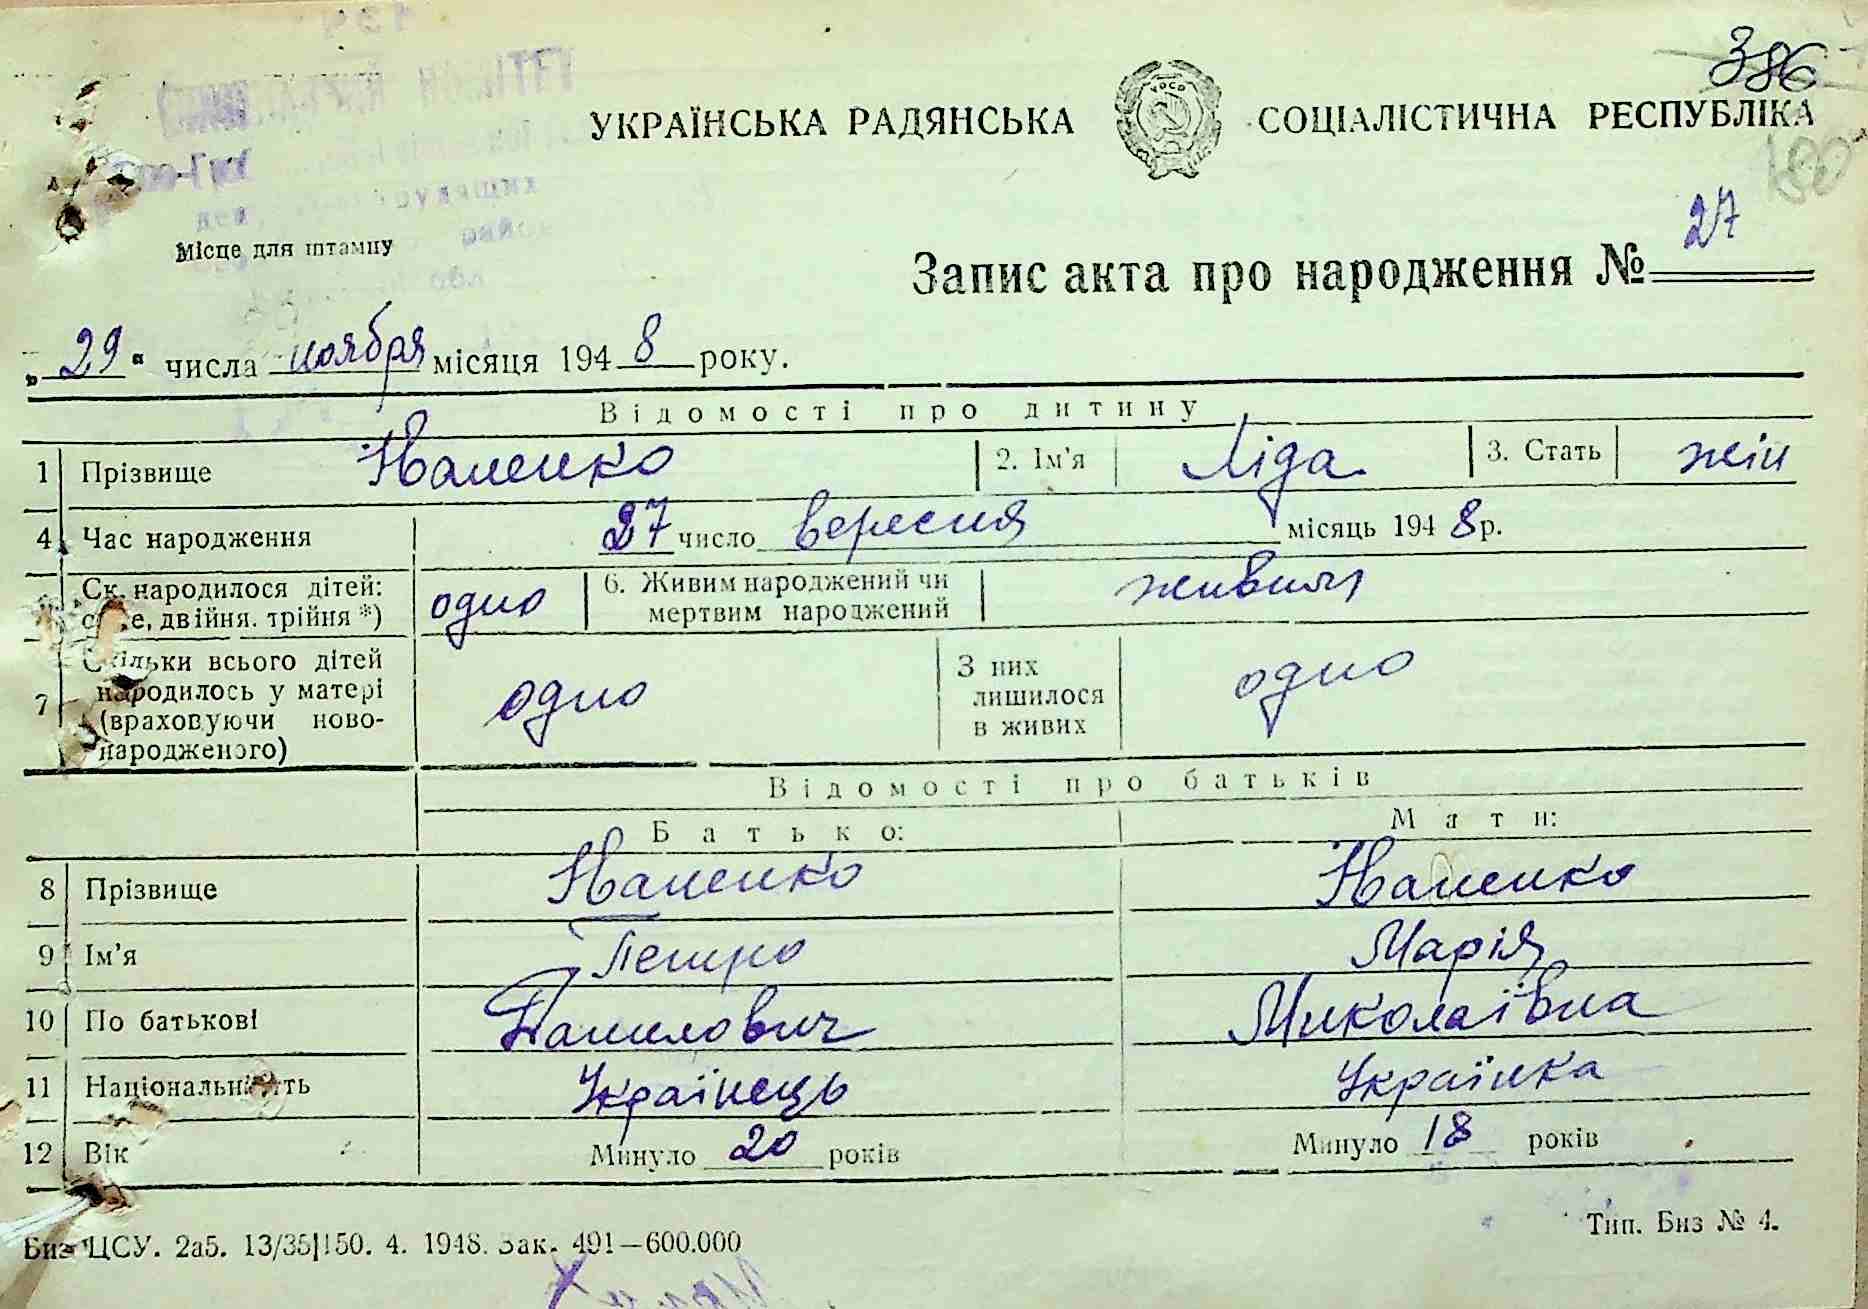 386
УКРАЇНСЬКА РАДЯНСЬКА УРСР СОЦІАЛІСТИЧНА РЕСПУБЛІКА
180
КОМІТЕТ
трудящих
Місце для штампу
Запис акта про народження № 27
„29“ числа ноября місяця 1948 року.
Відомості про дитину
1 Прізвище Наненко 2. Ім'я Ліда 3. Стать жін
4 Час народження 27 число вересня місяць 1948 р.
Ск. народилося дітей: двійня. трійня *) одно 6. Живим народжений чи мертвим народжений живим
7 Скільки всього дітей народилось у матері (враховуючи новонародженого) одно З них лишилося в живих одно
Відомості про батьків
Батько: Мати:
8 Прізвище Наненко Наненко
9 Ім'я Петро Марія
10 По батькові Данилович Миколаївна
11 Національність Українець Українка
12 Вік Минуло 20 років Минуло 18 років
Биз ЦСУ. 2а5. 13/35|150. 4. 1948. Зак. 491—600.000 Тип. Биз № 4.